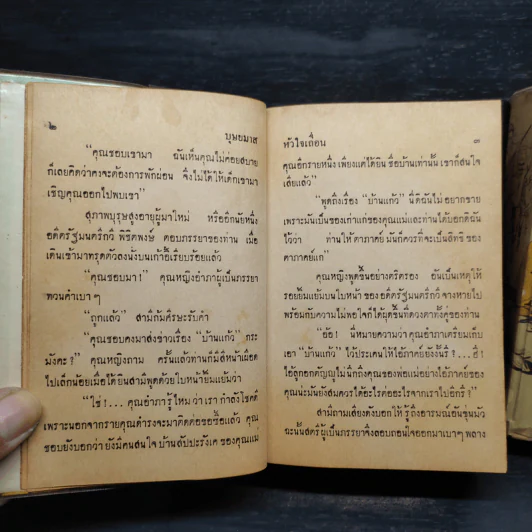 ๒
บุษยมาส
"คุณชอบเขามา ฉันเห็นคุณไม่ค่อยสบาย
ก็เลยคิดว่าคงจะต้องการพักผ่อน จึงไม่ได้ให้เด็กเขามา
เชิญคุณออกไปพบเขา"
สุภาพบุรุษสูงอายุผู้มาใหม่ หรืออีกนัยหนึ่ง
อดีตรัฐมนตรีกวี พิชิตพงษ์ ตอบภรรยาของท่าน เมื่อ
เดินเข้ามาทรุดตัวลงนั่งบนเก้าอี้เรียบร้อยแล้ว
"คุณชอบมา!" คุณหญิงอำภาผู้เป็นภรรยา
ทวนคำเบา ๆ
"ถูกแล้ว" สามีก้มศีรษะรับคำ
"คุณชอบคงมาส่งข่าวเรื่อง "บ้านแก้ว" กระ
มังคะ?" คุณหญิงถาม ครั้นแล้วท่านก็มีสีหน้าเผือด
ไปเล็กน้อยเมื่อได้ยินสามีพูดด้วยใบหน้ายิ้มแย้มว่า
"ใช่!...คุณอำภารู้ไหมว่าเรา กำลังโชคดี
เพราะนอกจากรายคุณดำรงจะมาติดต่อขอซื้อแล้ว คุณ
ชอบยังบอกว่า ยังมีคนสนใจ บ้านลับปะรังเค ของคุณแม่
หัวใจเถื่อน
๓
คุณอีกรายหนึ่ง เพียงแค่ได้ยิน ชื่อบ้านเท่านั้น เขาก็สนใจ
เสียแล้ว"
"พูดถึงเรื่อง "บ้านแก้ว" นี่ดิฉันไม่อยากขาย
เพราะมันเป็นของเก่าแก่ของคุณแม่และท่านได้บอกดิฉัน
ไว้ว่า ท่านให้ ดาภาคย์ มันก็ควรที่จะเป็นสิทธิ ของ
ดาภาคย์แก"
คุณหญิงพูดขึ้นอย่างตริตรอง อันเป็นเหตุให้
รอยยิ้มแย้มบนใบหน้า ของ อดีตรัฐมนตรีกวี จางหายไป
พร้อมกับความไม่พอใจก็ได้ผุดขึ้นที่ดวงตาทั้งคู่ของท่าน
"อ้อ! นี่หมายความว่าคุณอำภาเตรียมเก็บ
เอา "บ้านแก้ว" ไว้ประเคนให้ไอ้ภาคย์ยังงั้นรึ?...ฮึ!
ไอ้ลูกอกตัญญูไม่นึกถึงคุณของพ่อแม่อย่างไอ้ภาคย์ของ
คุณน่ะมันยังสมควรได้อะไรต่ออะไรจากเราไปอีกรึ?"
สามีถามเสียงดังบอกให้ รู้ถึงอารมณ์อันขุ่นมัว
ฉะนั้นสตรีผู้เป็นภรรยาจึงลอบถอนใจออกมาเบาๆ พลาง